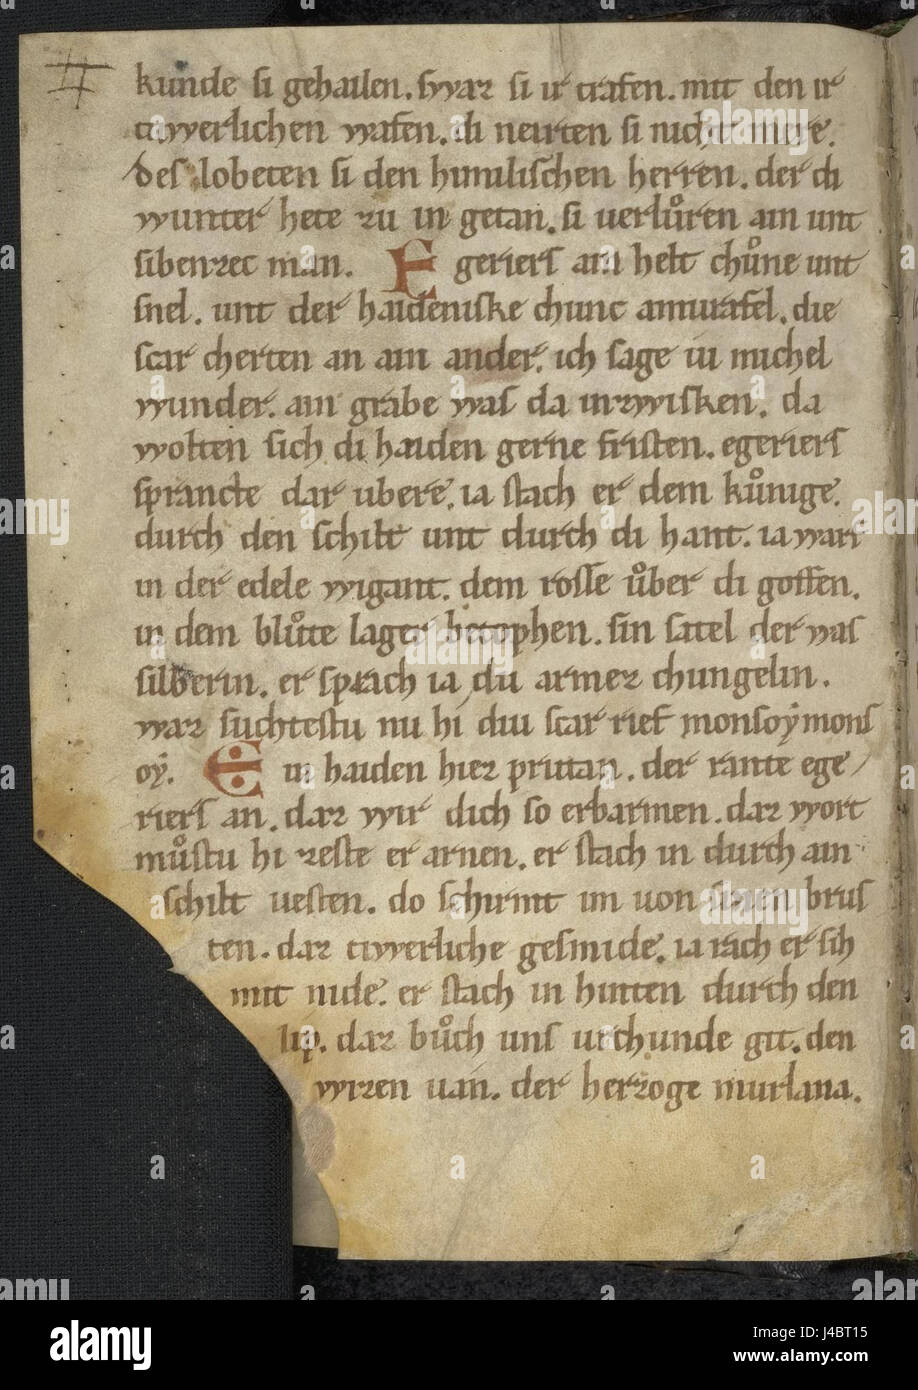 kunde si gehailen. swaz si ir trafen. mit den ir
tiwerlichen wafen. di neirten si nicht mere.
des lobeten si den himilischen herren. der di
wunter hete zu in getan. si uerlůren ain unt
sibenzec man. Egeriers ain helt chůne unt
snel. unt der haideniske chunc amurafel. die
scar cherten an ain ander. ich sage iu michel
wunder. ain grabe was da inzwisken. da
wolten sich di haiden gerne fristen. egeriers
sprancte dar ubere. ia stach er dem kůnige.
durch den schilt unt durch di hant. ia warf
in der edele wigant. dem rosse ůber di goffen.
in dem blůte lager betophen. sin satel der was
silberin. er sprach ia du armez chungelin.
waz suchtestu nu hi diu scar rief monsoÿ mons
oÿ. Ein haiden hiez prutan. der rante ege
riers an. daz wir dich so erbarmen. daz wort
můstu hi zeste er arnen. er stach in durch ain
schilt uesten. do schirmt im uon sinen brus
ten. daz tiwerliche gesmide. ia rach er sih
mit nide. er stach in hinten durch den
lip. daz bůch uns urchunde git. den
wizen uan. der herzoge murlana.
alamy
a
J4BT15
www.alamy.com